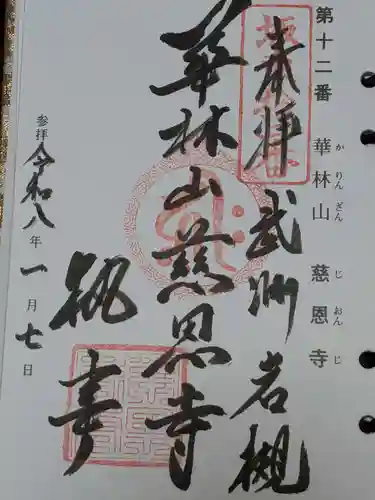 第十二番 華林山 慈恩寺
か りん ざん じ おん じ
奉拝 武州岩槻
華林山慈恩寺
観寿
参拝 令和八年一月七日